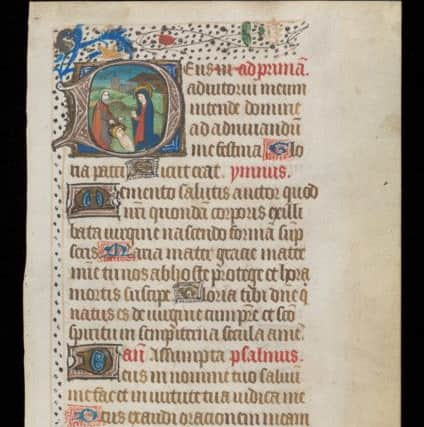 Deus in ad primā.
adiutoriū meum
intende domine
ad adiuvandū
me festina Glo
ria patri Sicut erat. ymnus.
Memento salutis auctor quod
nr̄i quondā corporis ex illi
bata uirgine nascendo formā sūp
seris Maria mater gracie mater
mie tu nos ab hoste protege et hora
mortis suscipe Gloria tibi dn̄e q̄
natus es de uirgine cum pr̄e et sc̄o
spiritu in sempiterna secula amē.
an̄ Assumpta psalmus.
Deus in nomine tuo saluū
me fac et in uirtute tua iudica me
Deus exaudi orationem meam